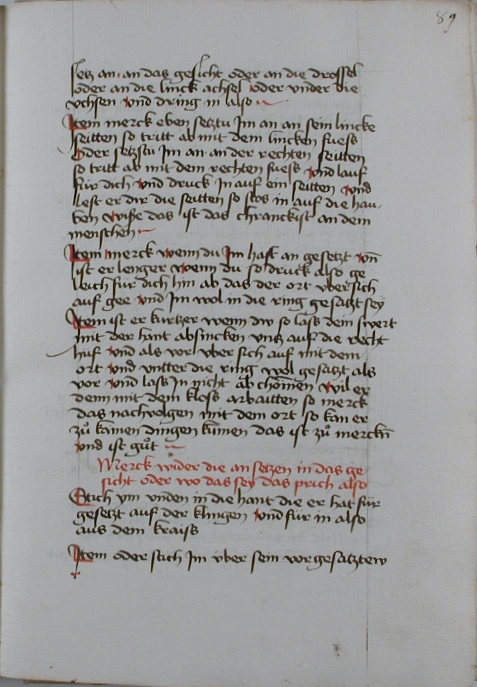 89
setz an an das gesicht oder an die drossel
oder an die linck achsel oder vnder die
vchsen vnd dring in also
Item merck eben setztu Im an an sein lincke
seitten so tritt ab mit dem lincken fuess
Oder setzstu Im an an der rechten seitten
so tritt ab mit dem rechten fuess vnd lauf
für dich vnd druck In auf ein seitten vnd
lest er dir die seitten so stos in auf die hau
ben das ist das chranckist an dem
menschen
Item merck wenn du Im hast an gesetzt vn̄
ist er lenger wenn du so druck also ge
leich für dich hin ab das der ort vbersich
auf gee vnd Im wol in die ring gesatzt sey
Item ist er kurtzer wenn dw so lass dein swert
mit der hant absincken vntz auf die recht
huf vnd als vor vber sich auf mit dem
ort vnd vntter die ring wol gesatzt als
vor vnd lass In nicht ab chomen wil er
denn mit dem kloss arbaitten so merck
das nachvolgen mit dem ort so kan er
zů kainen dingen kumen das ist zů merckn̄
vnd ist gůt
Merck wider die an setzen in das ge
sicht oder wo das sey das prich also
Stich vm vnden in die hant die er hat für
gesetzt auf der klingen vnd für in also
aus dem kraiss
Item oder stich Im vber sein vorgesatztew